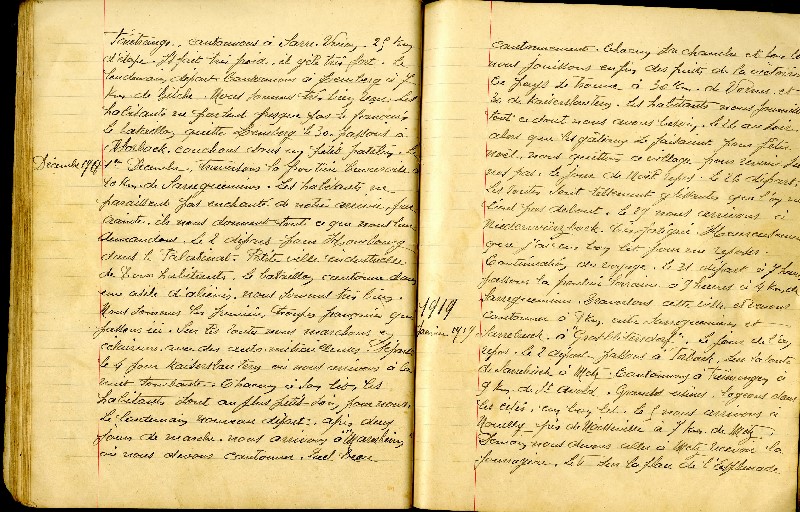 Fénétrange, cantonnons à Sarre-Union, 25 km
d'étape. Il fait très froid, il gèle très fort. Le
lendemain, départ. Cantonnons à Lemberg à 7
km de Bitche. Nous sommes très bien reçus. Les
habitants ne parlent presque pas le français
le bataillon quitte Lemberg le 30. Passons à
Rorbach, couchons dans un petit patelin. Le
Décembre 1918
1er Décembre, traversons la frontière bavaroise à
10 km de Sarreguemines. Les habitants ne
paraissent pas enchantés de notre arrivée, par
crainte, ils nous donnent tout ce que nous leur
demandons. Le 2 départ pour Hombourg
dans le Palatinat. Petite ville industrielle
de habitants. Le bataillon cantonne dans
un asile d'aliénés, nous sommes très bien.
Nous sommes les premières troupes françaises qui
passons ici. Sur les routes nous marchons en
éclaireurs avec des auto-mitrailleuses. Départ
le 4 pour Kaiserslautern où nous arrivons à la
nuit tombante. Chacun a son lit, les
habitants sont au plus petit soin pour nous.
Le lendemain nouveau départ. Après deux
jours de marche, nous arrivons à
où nous devons cantonner.
cantonnement. Chacun sa chambre et son lit
nous jouissons enfin des fruits de la victoire.
Ce pays se trouve à 30 km. de Worms et
30 de Kaiserslautern. Les habitants nous fournissent
tout ce dont nous avons besoin. Le 24 au soir
alors que les gâteaux se faisaient pour fêter
Noël, nous quittons ce village pour revenir sur
nos pas. Le jour de Noël repos. Le 26 départ.
Les routes sont tellement glissantes que l'on ne
tient pas debout. Le 27 nous arrivons à
très fatigué. Heureusement
que j'ai un bon lit pour me reposer.
Continuation du voyage. Le 31 départ à 7 heures
passons la frontière lorraine à 9 heures à 4 km de
Sarreguemines. Traversons cette ville et venons
1919
Janvier 1919
cantonner à 8 km, entre Sarreguemines et
Sarrebruck, à Grossbliederstroff. Le jour de l'an
repos. Le 2 départ. Passons à Forbach, sur la route
de Sarrebruck à Metz. Cantonnons à
9 km de St Avold. Grandes usines. Logeons dans
les cités, un bon lit. Le 5 nous arrivons à
Nouilly près de à 7 km. de Metz.
Demain, nous devons aller à Metz recevoir la
fourragère. Le 6 sur la place de l'Esplanade